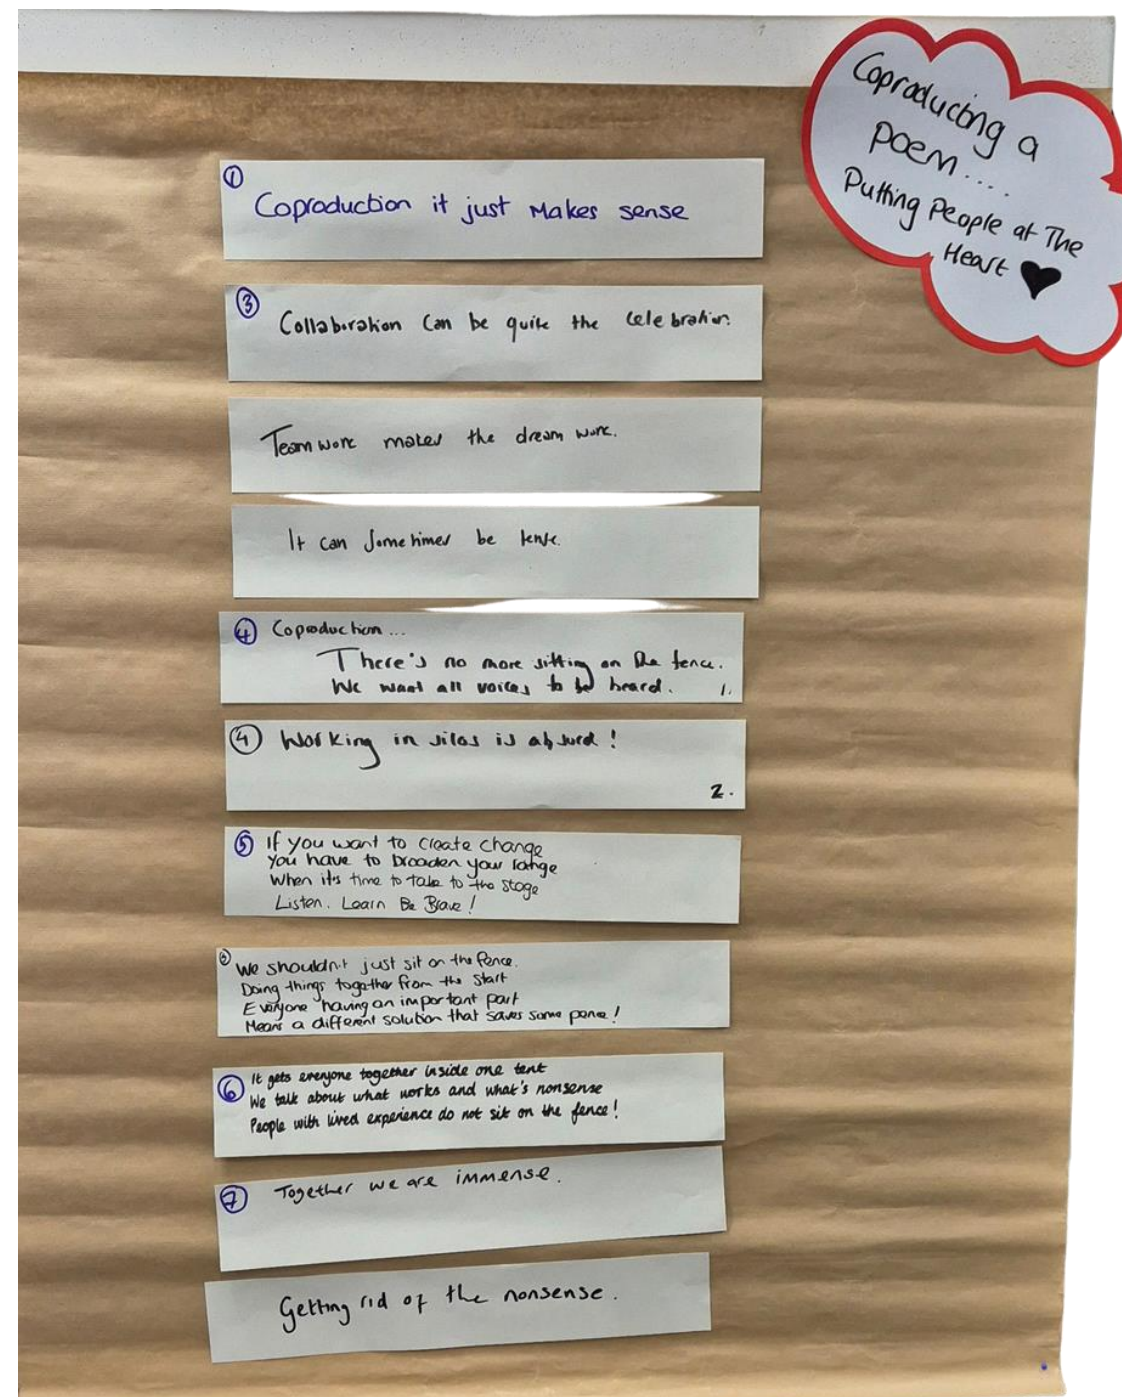 Coproducing a
poem....
Putting People at The
Heart
① Coproduction it just Makes sense
③ Collaboration can be quite the celebration.
Teamwork makes the dream work.
It can sometimes be tense.
④ Coproduction...
There's no more sitting on the fence.
We want all voices to be heard. 1.
④ Working in silos is absurd!
2.
⑤ If you want to create change
You have to broaden your range
When it's time to take to the stage
Listen. Learn Be Brave!
We shouldn't just sit on the fence.
Doing things together from the start
Everyone having an important part
Means a different solution that saves some pence!
⑥ It gets everyone together inside one tent
We talk about what works and what's nonsense
People with lived experience do not sit on the fence!
⑦ Together we are immense.
Getting rid of the nonsense.